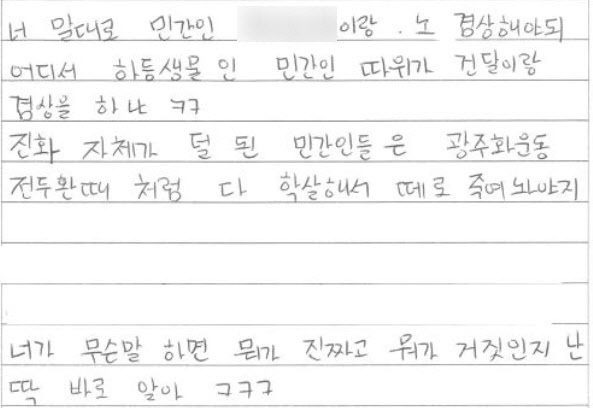 너 말대로 민간인 이랑 . 노 겸상해야되
어디서 하등생물인 민간인 따위가 건달이랑
겸상을 하냐 ㅋㅋ
진화 자체가 덜 된 민간인들은 광주화운동
전두환때 처럼 다 학살해서 떼로 죽여놔야지
너가 무슨말 하면 뭐가 진짜고 뭐가 거짓인지 난
딱 바로 알아 ㅋㅋㅋ